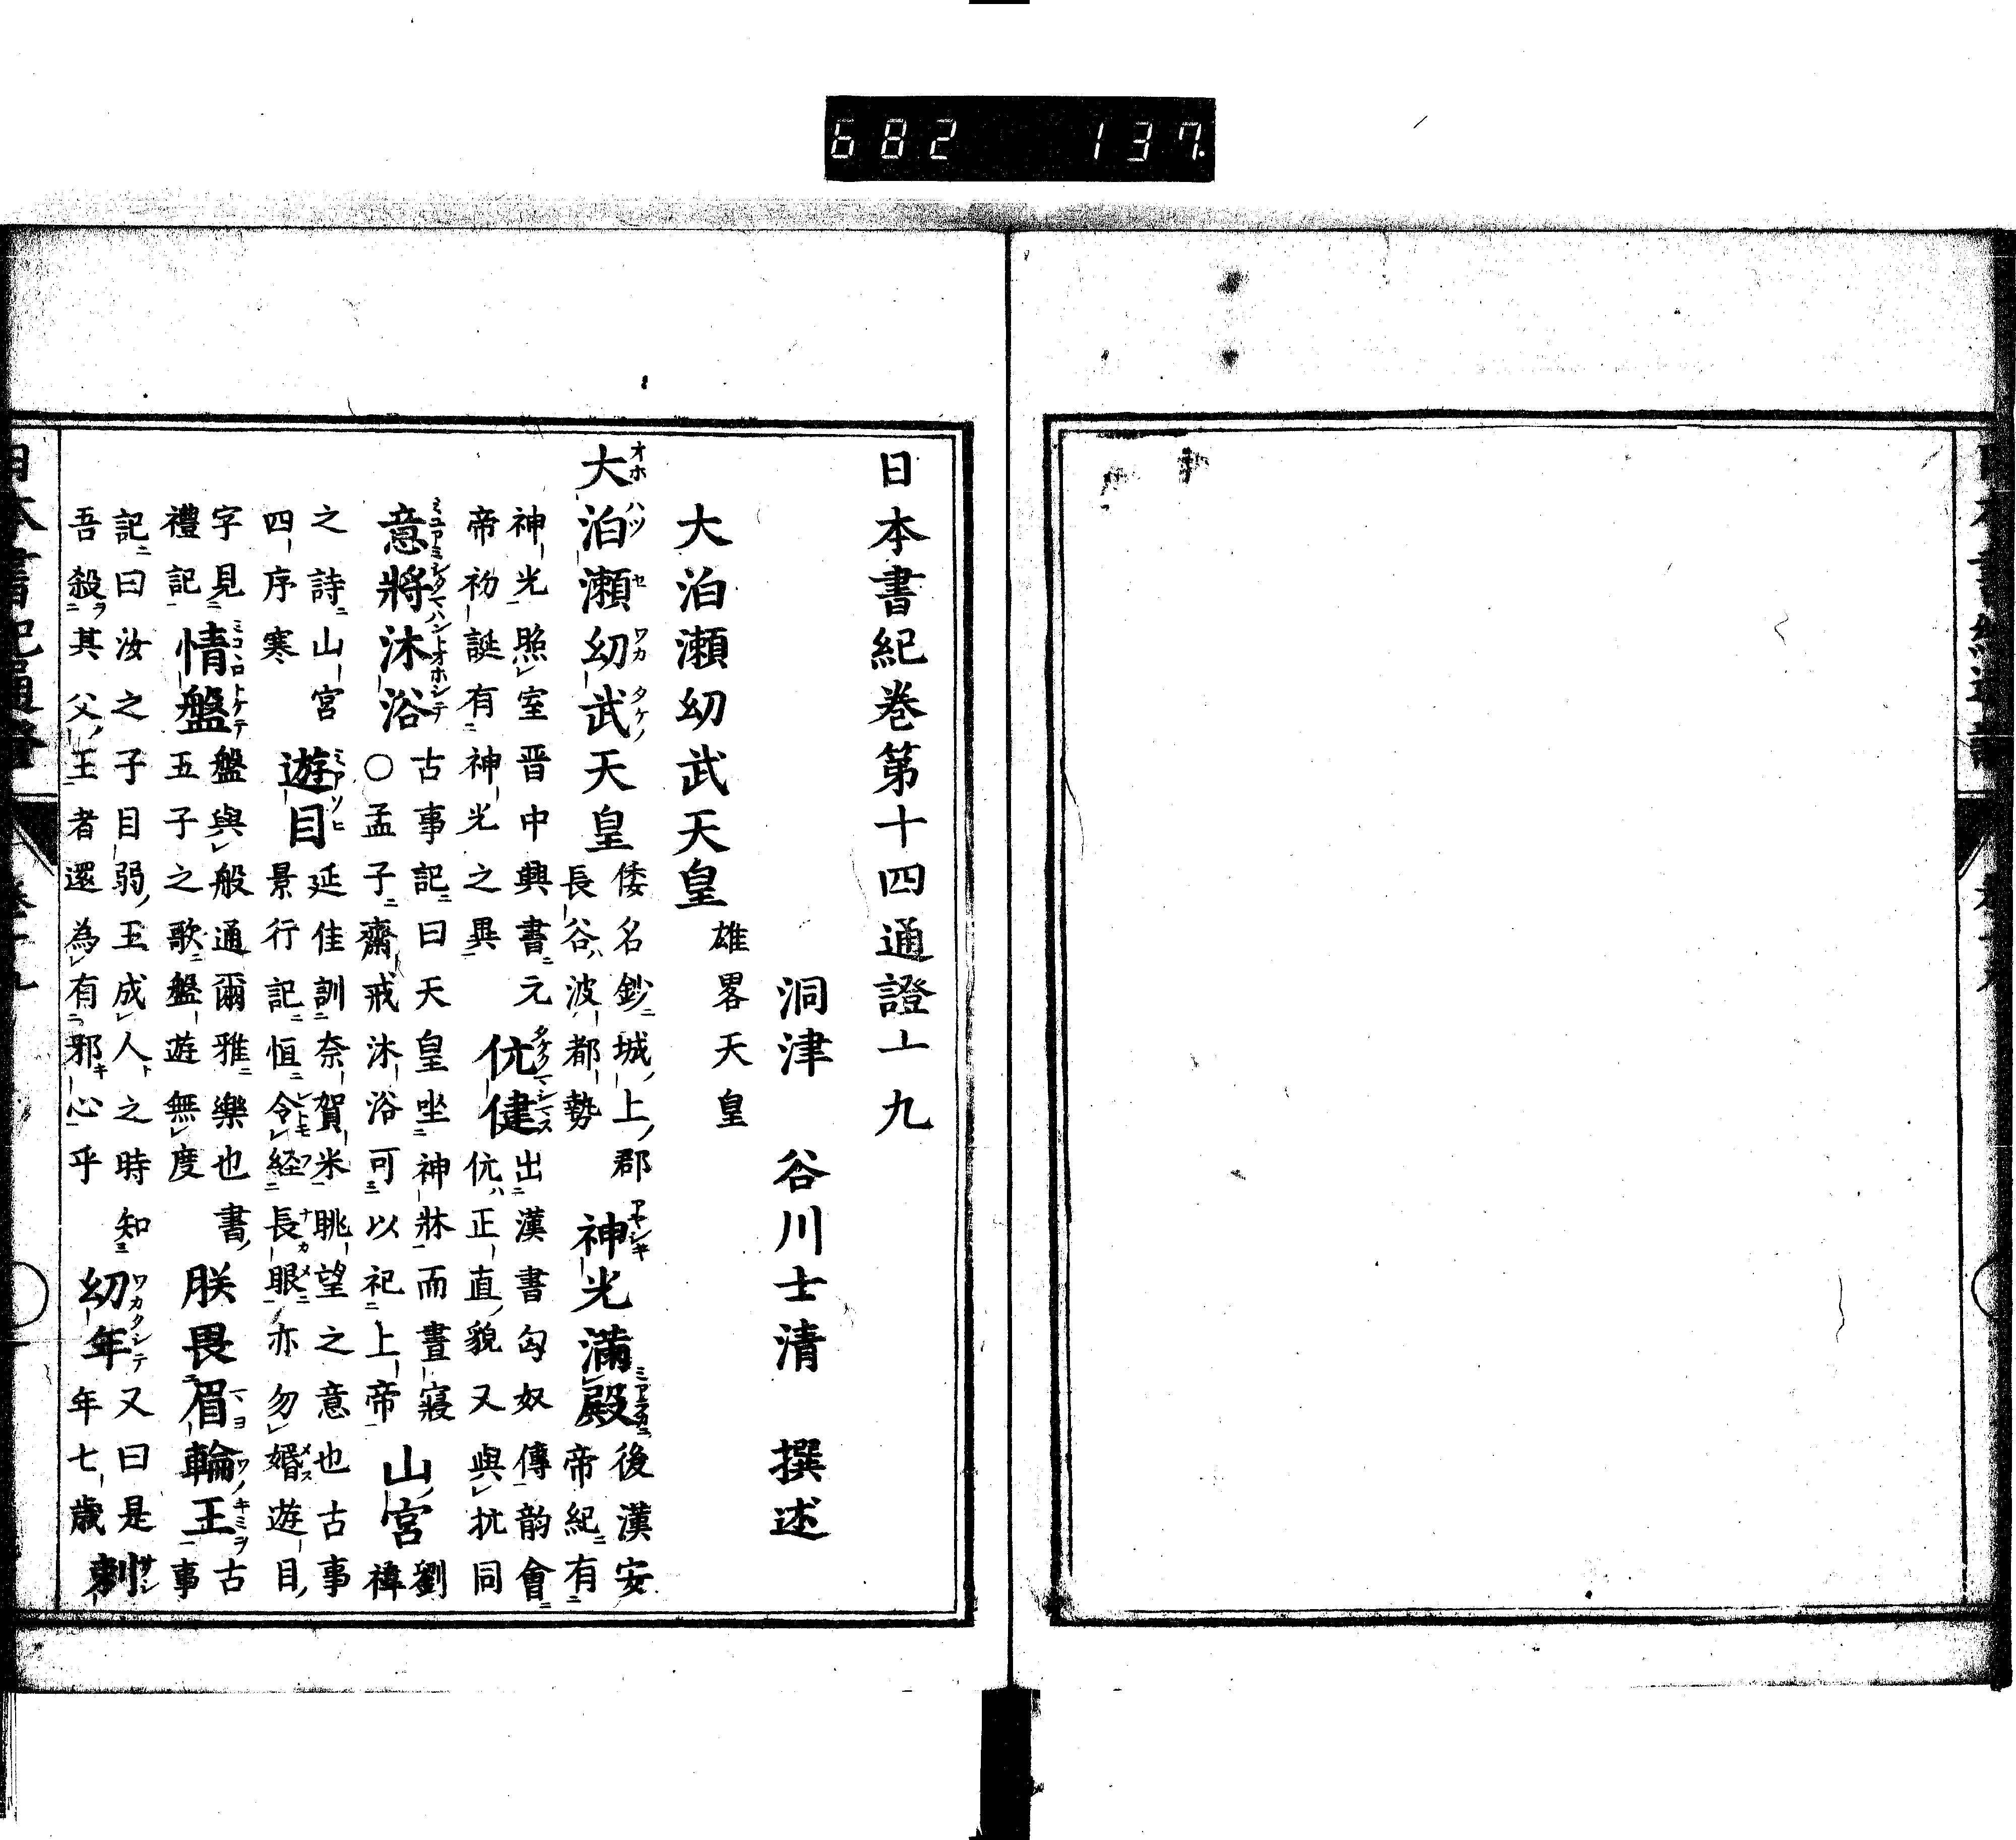 682 137
日本書紀卷第十四通證十九
洞津 谷川士清 撰述
大泊瀬幼武天皇 雄畧天皇
大泊瀬幼武天皇 倭名鈔城上郡長谷波都勢 神光満殿 後漢安帝紀有
神光照室晋中興書元帝初誕有神光之異 伉健 出漢書匈奴傳韵會伉正直貌又與抗同
意將沐浴 古事記曰天皇坐神牀而晝寢○孟子齋戒沐浴可以祀上帝 山宮 劉禕
之詩山宮四序寒 遊目 延佳訓奈賀米眺望之意也古事景行記恒令経長眼亦勿婚遊目
字見禮記 情盤 盤與般通爾雅樂也書五子之歌盤遊無度 朕畏眉輪王 古事
記曰汝之子目弱王成人之時知吾殺其父王者還為有邪心乎 幼年 又曰是年七歳 刺